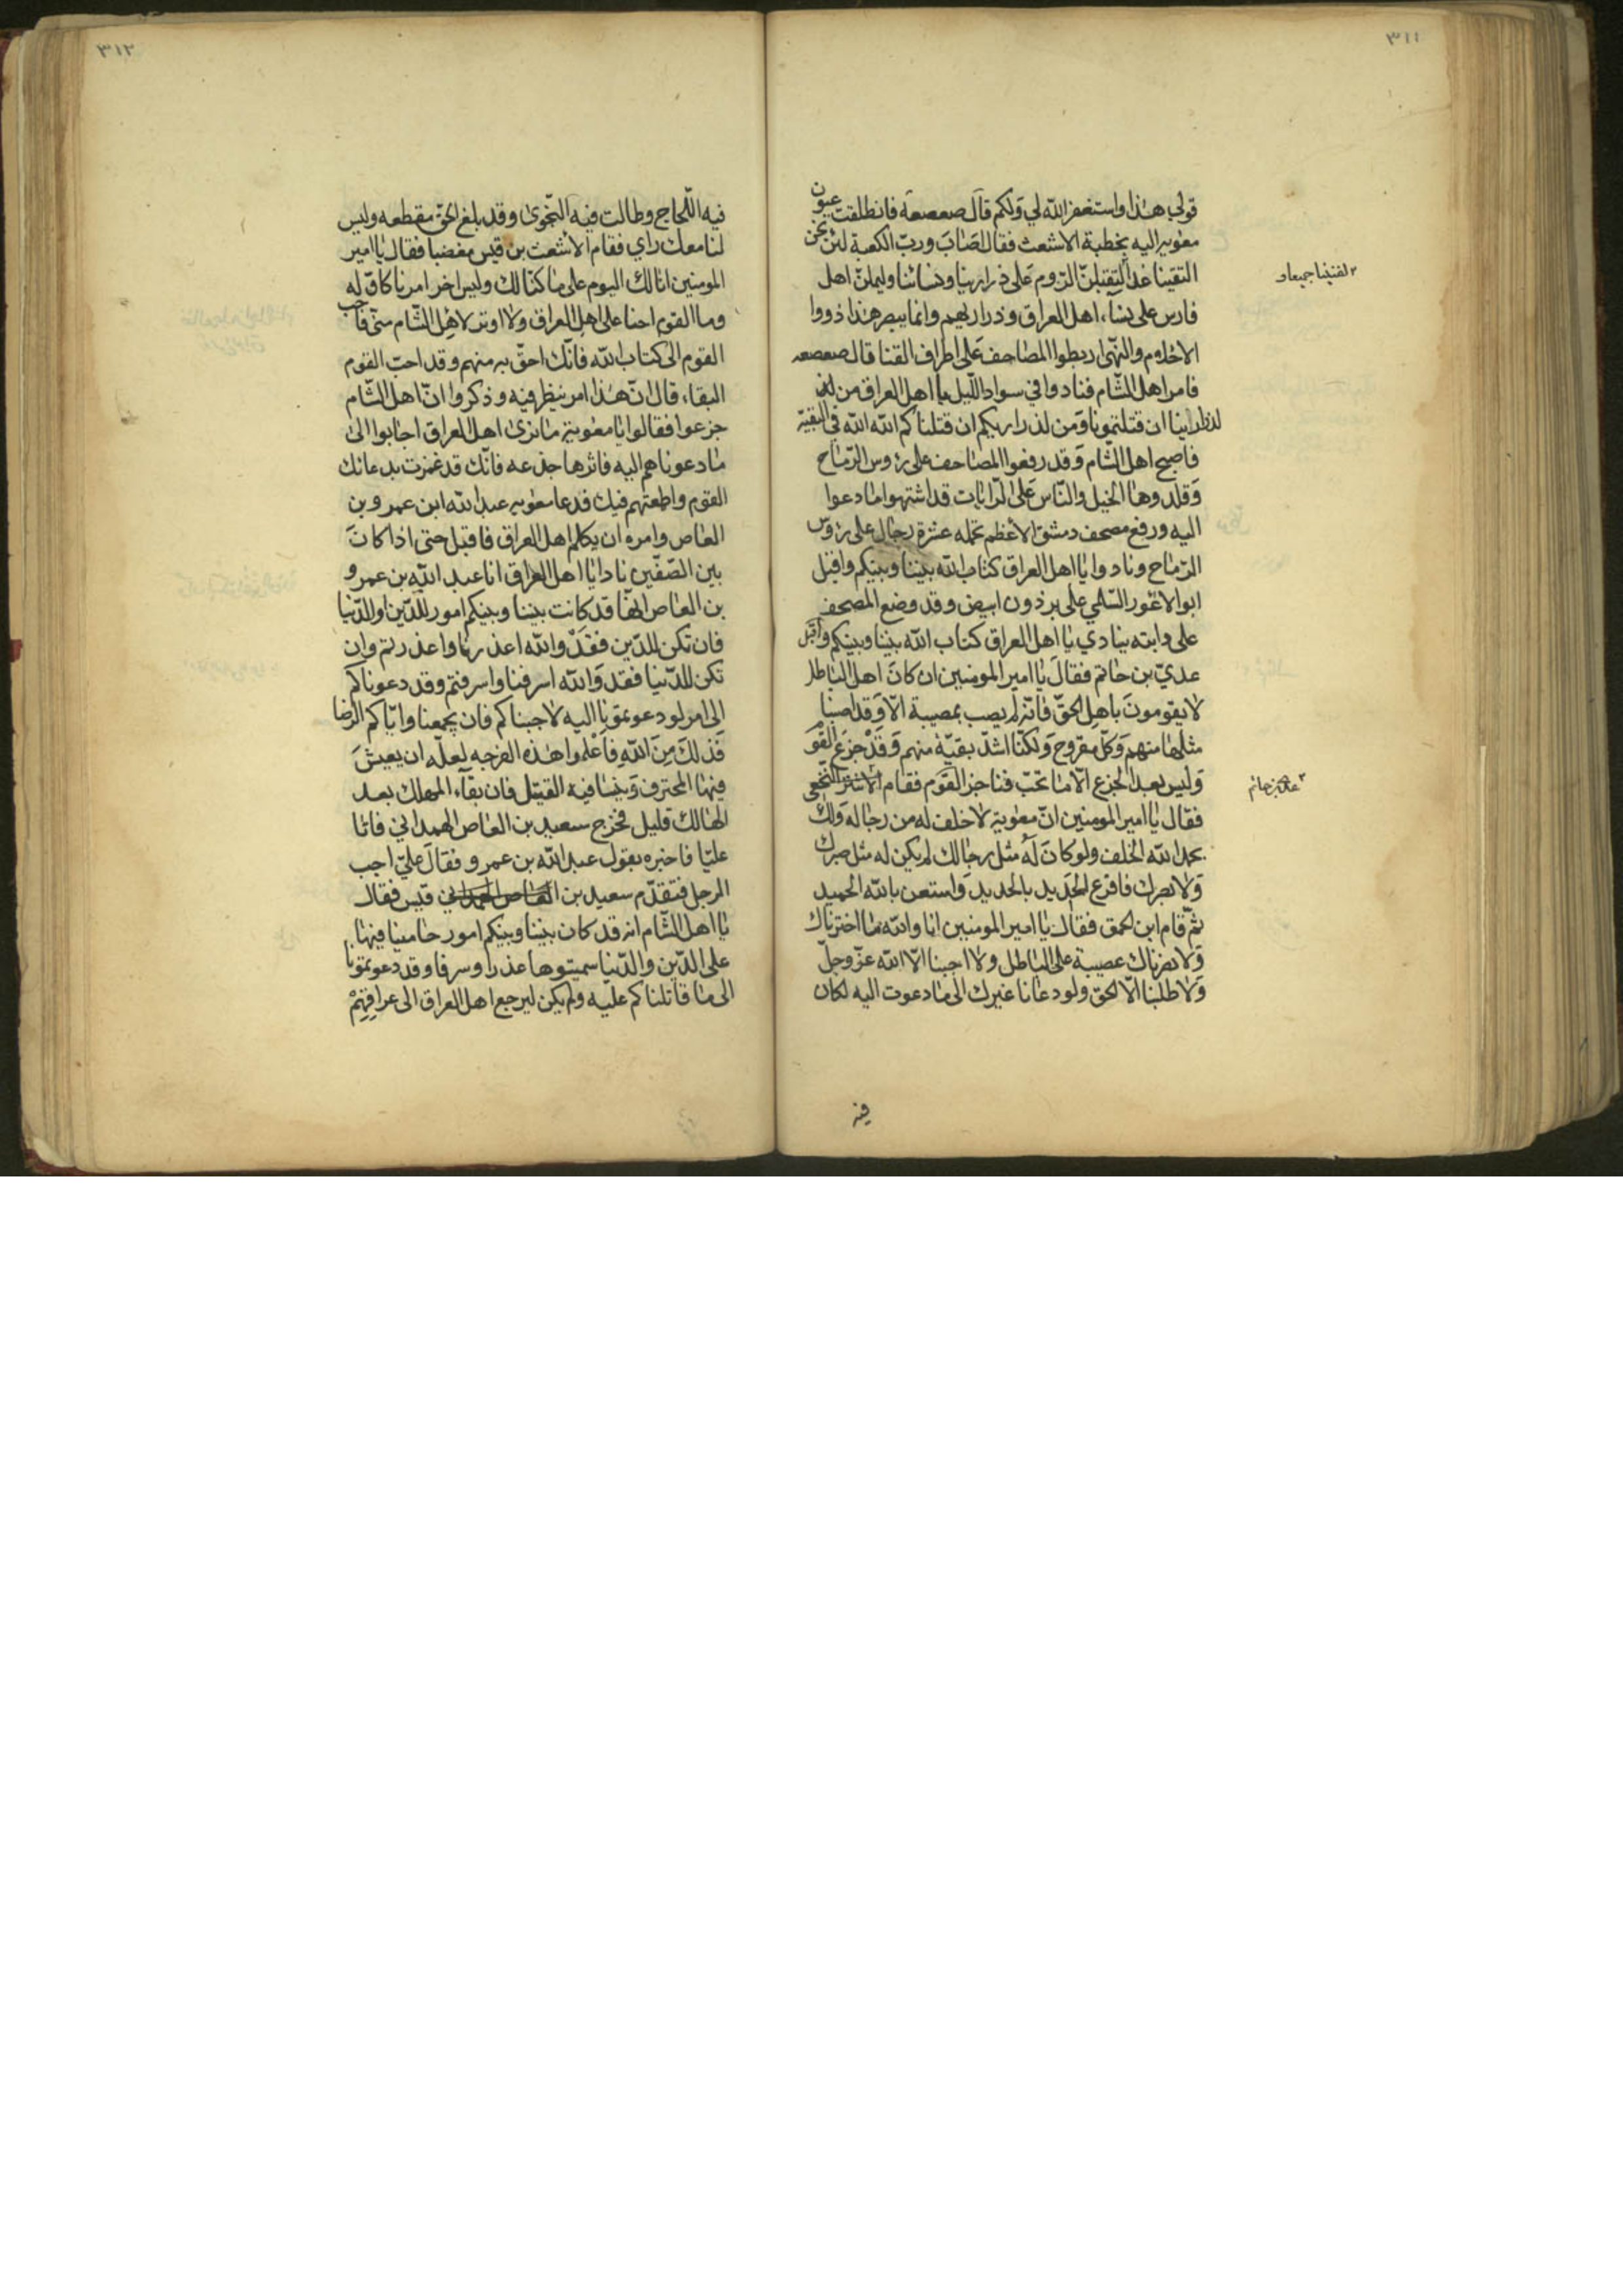 ٣١١
قولي هذا واستغفر الله لي ولكم قال صعصعة فانطلقت عيون
معوية اليه بخطبة الاشعث فقال اصاب ورب الكعبة لئن نحن
التقينا غدا لتقبلن الروم على ذرارينا ونسائنا وليملن اهل
٢ لقينا جميعا و
فارس على نساء اهل العراق وذراريهم وانما يبصر هذا ذووا
الاحلام والنهى اربطوا المصاحف على اطراف القنا قال صعصعه
فامر اهل الشام فنادوا في سواد الليل يا اهل العراق من
لذرارينا ان قتلتمونا ومن لذراريكم ان قتلناكم الله الله في البقية
فاصبح اهل الشام وقد رفعوا المصاحف على رؤس الرماح
وقلدوها الخيل والناس على الرايات قد اشتهوا ما دعوا
اليه ورفع مصحف دمشق الاعظم تحمله عشرة رجال على رؤس
الرماح ونادوا يا اهل العراق كتاب الله بيننا وبينكم واقبل
ابو الاعور السلمي على برذون ابيض وقد وضع المصحف
على دابته ينادي يا اهل العراق كتاب الله بيننا وبينكم واقبل
عدي بن حاتم فقال يا امير المومنين ان كان اهل الباطل
لا يقومون باهل الحق فانه لم يصب بمصيبة الا وقد اصبنا
مثلها منهم وكل مقروح ولكنا اشد بقية منهم وقد جزع القوم
وليس بعد الجزع الا ما تحب فناجز القوم فقام الاشتر النخعي
فقال يا امير المومنين ان معوية لا خلف له من رجاله ولك
بحمد الله الخلف ولو كان له مثل رجالك لم يكن له مثل صبرك
ولا بصرك فاقرع الحديد بالحديد واستعن بالله الحميد
ثم قام ابن الحمق فقال يا امير المومنين انا والله ما اخترناك
ولا نصرناك عصبية على الباطل ولا اجبنا الا الله عز وجل
ولا طلبنا الا الحق ولو دعانا غيرك الى ما دعوت اليه لكان
فيه
٣١٢
فيه اللجاج وطالت فيه النجوى وقد بلغ الحق مقطعه وليس
لنا معك راي فقام الاشعث بن قيس مغضبا فقال يا امير
المومنين انا لك اليوم على ما كنا لك وليس اخر امرنا كاوله
وما القوم احنا على اهل العراق ولا اوتر لاهل الشام مني فاجب
القوم الى كتاب الله فانك احق به منهم وقد احب القوم
البقاء قال ان هذا امر ينظر فيه وذكروا ان اهل الشام
جزعوا فقالوا يا معوية ما نرى اهل العراق اجابوا الى
ما دعوناهم اليه فاثرها جذعه فانك قد غمزت بدعائك
القوم واطمعتهم فيك فدعا معويه عبد الله ابن عمرو بن
العاص وامره ان يكلم اهل العراق فاقبل حتى اذا كان
بين الصفين نادا يا اهل العراق انا عبد الله بن عمرو
بن العاص انها قد كانت بيننا وبينكم امور للدين او الدنيا
فان تكن للدين فقد والله اعذرنا واعذرتم وان
تكن للدنيا فقد والله اسرفنا واسرفتم وقد دعوناكم
الى امر لو دعوتمونا اليه لاجبناكم فان يجمعنا واياكم الرضا
فذلك من الله فاغلموا هذه الفرجه لعله ان يعيش
فيها المحترف وينسا فيه القتيل فان بقاء المهلك بعد
الهالك قليل فخرج سعيد بن العاص الهمداني فاتا
عليا فاخبره بقول عبد الله بن عمرو فقال علي اجب
الرجل فتقدم سعيد بن قيس فقال
يا اهل الشام انه قد كان بيننا وبينكم امور حامينا فيها
على الدين والدنيا سميتوها عذرا وسرفا وقد دعوتمونا
الى ما قاتلناكم عليه ولم يكن ليرجع اهل العراق الى عراقهم